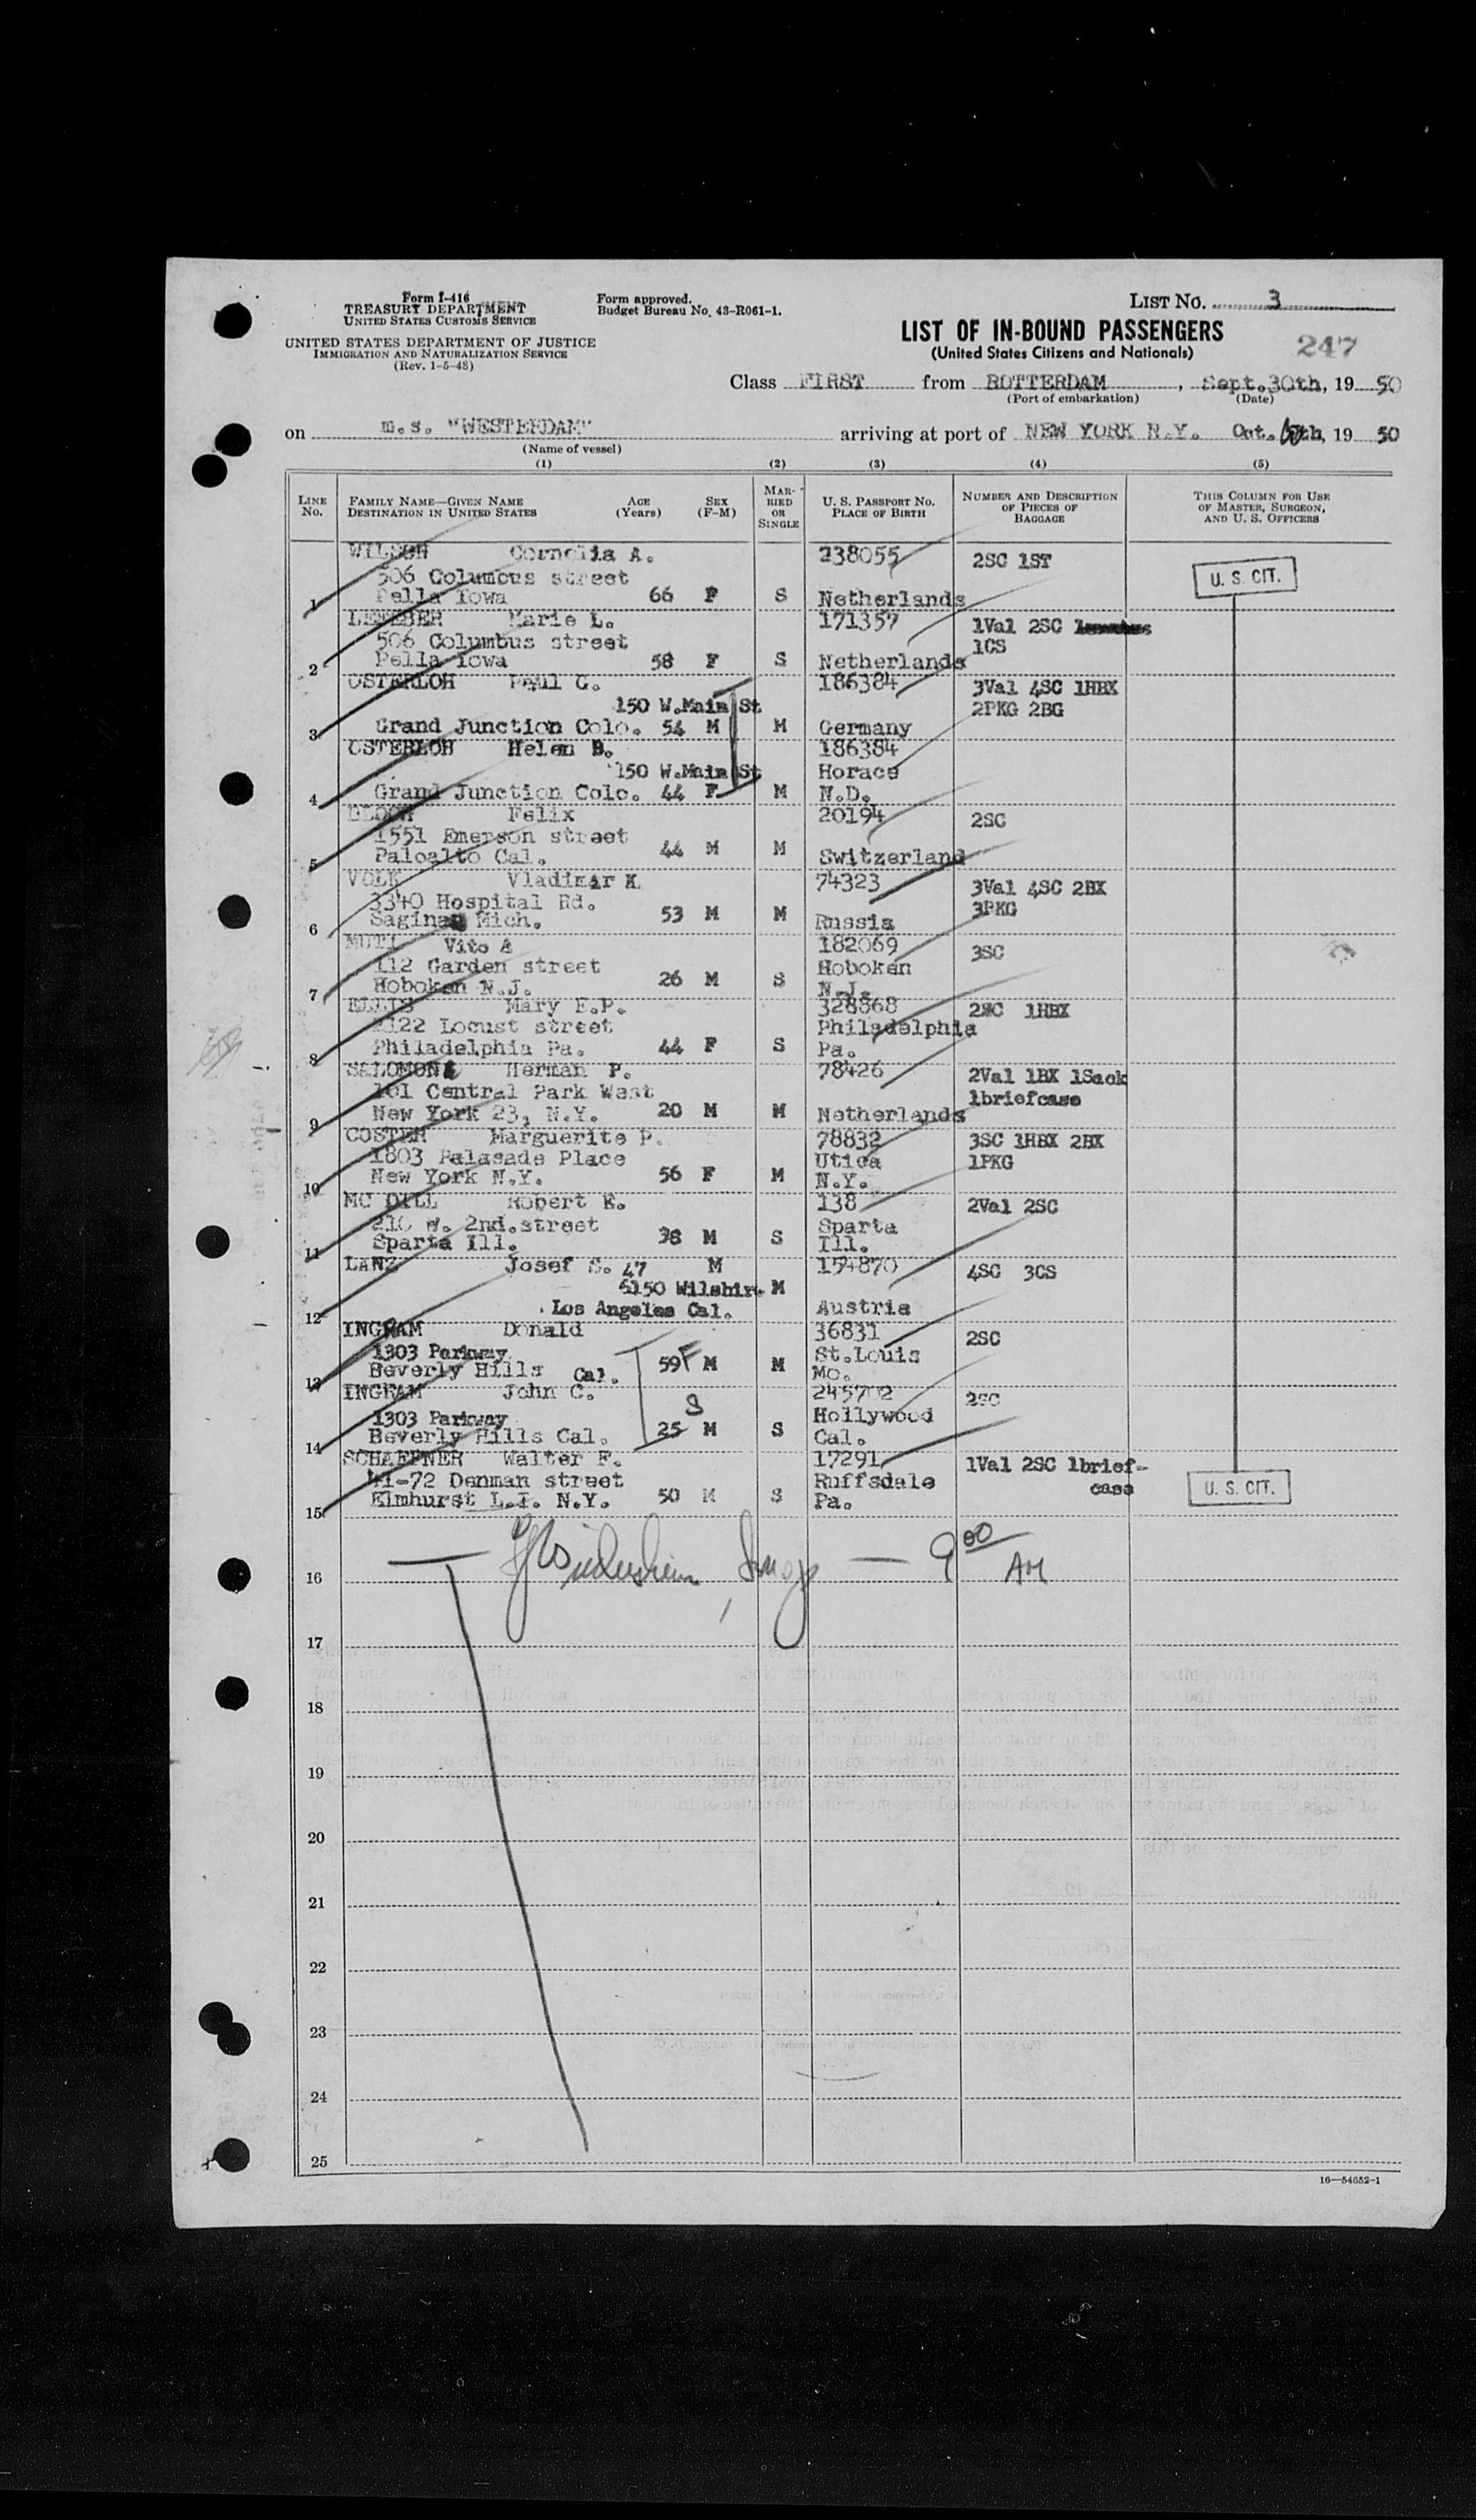 Form I-416
TREASURY DEPARTMENT
UNITED STATES CUSTOMS SERVICE
UNITED STATES DEPARTMENT OF JUSTICE
IMMIGRATION AND NATURALIZATION SERVICE
(Rev. 1-5-48)
Form approved.
Budget Bureau No. 43-R061-1.
LIST NO. 3
LIST OF IN-BOUND PASSENGERS
(United States Citizens and Nationals)
247
Class FIRST from ROTTERDAM, Sept.30th, 1950
(Port of embarkation) (Date)
on m.s. "WESTERDAM" arriving at port of NEW YORK N.Y. Oct. th, 1950
(Name of vessel)
(1) (2) (3) (4) (5)
LINE NO.
FAMILY NAME—GIVEN NAME
DESTINATION IN UNITED STATES
AGE (Years)
SEX (F-M)
MARRIED OR SINGLE
U. S. PASSPORT NO.
PLACE OF BIRTH
NUMBER AND DESCRIPTION OF PIECES OF BAGGAGE
THIS COLUMN FOR USE OF MASTER, SURGEON, AND U. S. OFFICERS
WILSON Cornelia A. 238055 2SC 1ST
506 Columbus street
1 Pella Iowa 66 F S Netherlands
U. S. CIT.
Marie L. 171357 1Val 2SC
506 Columbus street 1CS
2 Pella Iowa 58 F S Netherlands
OSTERLOH Paul G. 186384 3Val 4SC 1HBX
150 W.Main St 2PKG 2BG
3 Grand Junction Colo. 54 M M Germany
OSTERLOH Helen B. 186384
150 W.Main St Horace
4 Grand Junction Colo. 44 F M N.D.
BLOCH Felix 20194 2SC
1551 Emerson street
5 Paloalto Cal. 44 M M Switzerland
VOLK Vladimar K 74323 3Val 4SC 2BX
3340 Hospital Rd. 3PKG
6 Saginaw Mich. 53 M M Russia
MUTI Vito A 182069 3SC
112 Garden street Hoboken
7 Hoboken N.J. 26 M S N.J.
ELLIS Mary E.P. 328868 2SC 1HBX
2122 Locust street Philadelphia
8 Philadelphia Pa. 44 F S Pa.
Herman P. 78426 2Val 1BX 1Sack
101 Central Park West 1briefcase
9 New York 23, N.Y. 20 M M Netherlands
COSTER Marguerite P. 78832 3SC 1HBX 2BX
1803 Palasade Place Utica 1PKG
10 New York N.Y. 56 F M N.Y.
MC DILL Robert E. 138 2Val 2SC
210 W. 2nd.street Sparta
11 Sparta Ill. 38 M S Ill.
LANZ Josef S. 47 M 154870 4SC 3CS
6150 Wilshire M
12 Los Angeles Cal. Austria
INGRAM Donald 36831 2SC
1303 Parkway St.Louis
13 Beverly Hills Cal. 59 F M M Mo.
INGRAM John C. 245702 2SC
1303 Parkway S Hollywood
14 Beverly Hills Cal. 25 M S Cal.
SCHAFFNER Walter F. 17291 1Val 2SC 1brief-
41-72 Denman street Ruffsdale case
15 Elmhurst L.I. N.Y. 50 M S Pa.
U. S. CIT.
16 9 00 AM
17
18
19
20
21
22
23
24
25
16—54652-1